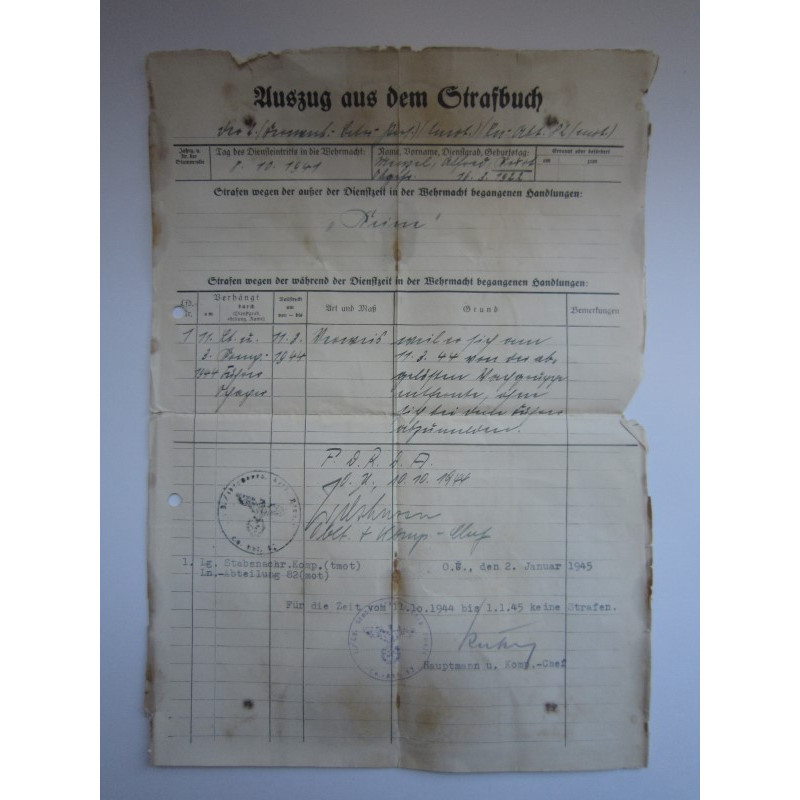 Auszug aus dem Strafbuch
Jahrg. u. Nr. der Stammrolle
Tag des Diensteintritts in die Wehrmacht:
8. 10. 1941
Name, Vorname, Dienstgrad, Geburtstag:
Alfred
Obgefr. 16. 3. 1922
am zum
Strafen wegen der außer der Dienstzeit in der Wehrmacht begangenen Handlungen:
„Keine"
Strafen wegen der während der Dienstzeit in der Wehrmacht begangenen Handlungen:
Lfd. Nr.
Verhängt
am
durch
(Dienstgrad, -stellung, Name)
von — bis
Art und Maß
Grund
Bemerkungen
1 11. Lt. u. 11. 3. Verweis weil er sich am
3. Komp.- 1944 11. 3. 44 von der ab-
1944 Führer gelösten Wachgruppe
entfernte, ohne
sich bei dem Führer
abzumelden.
F. d. R. d. A.
O. U., 10. 10. 1944
Oblt. + Komp.-Chef
1. lg. Stabsnachr.Komp.(tmot)
Ln.-Abteilung 82(mot)
O.U., den 2. Januar 1945
Für die Zeit vom 11.1o.1944 bis 1.1.45 keine Strafen.
Hauptmann u. Komp.-Chef